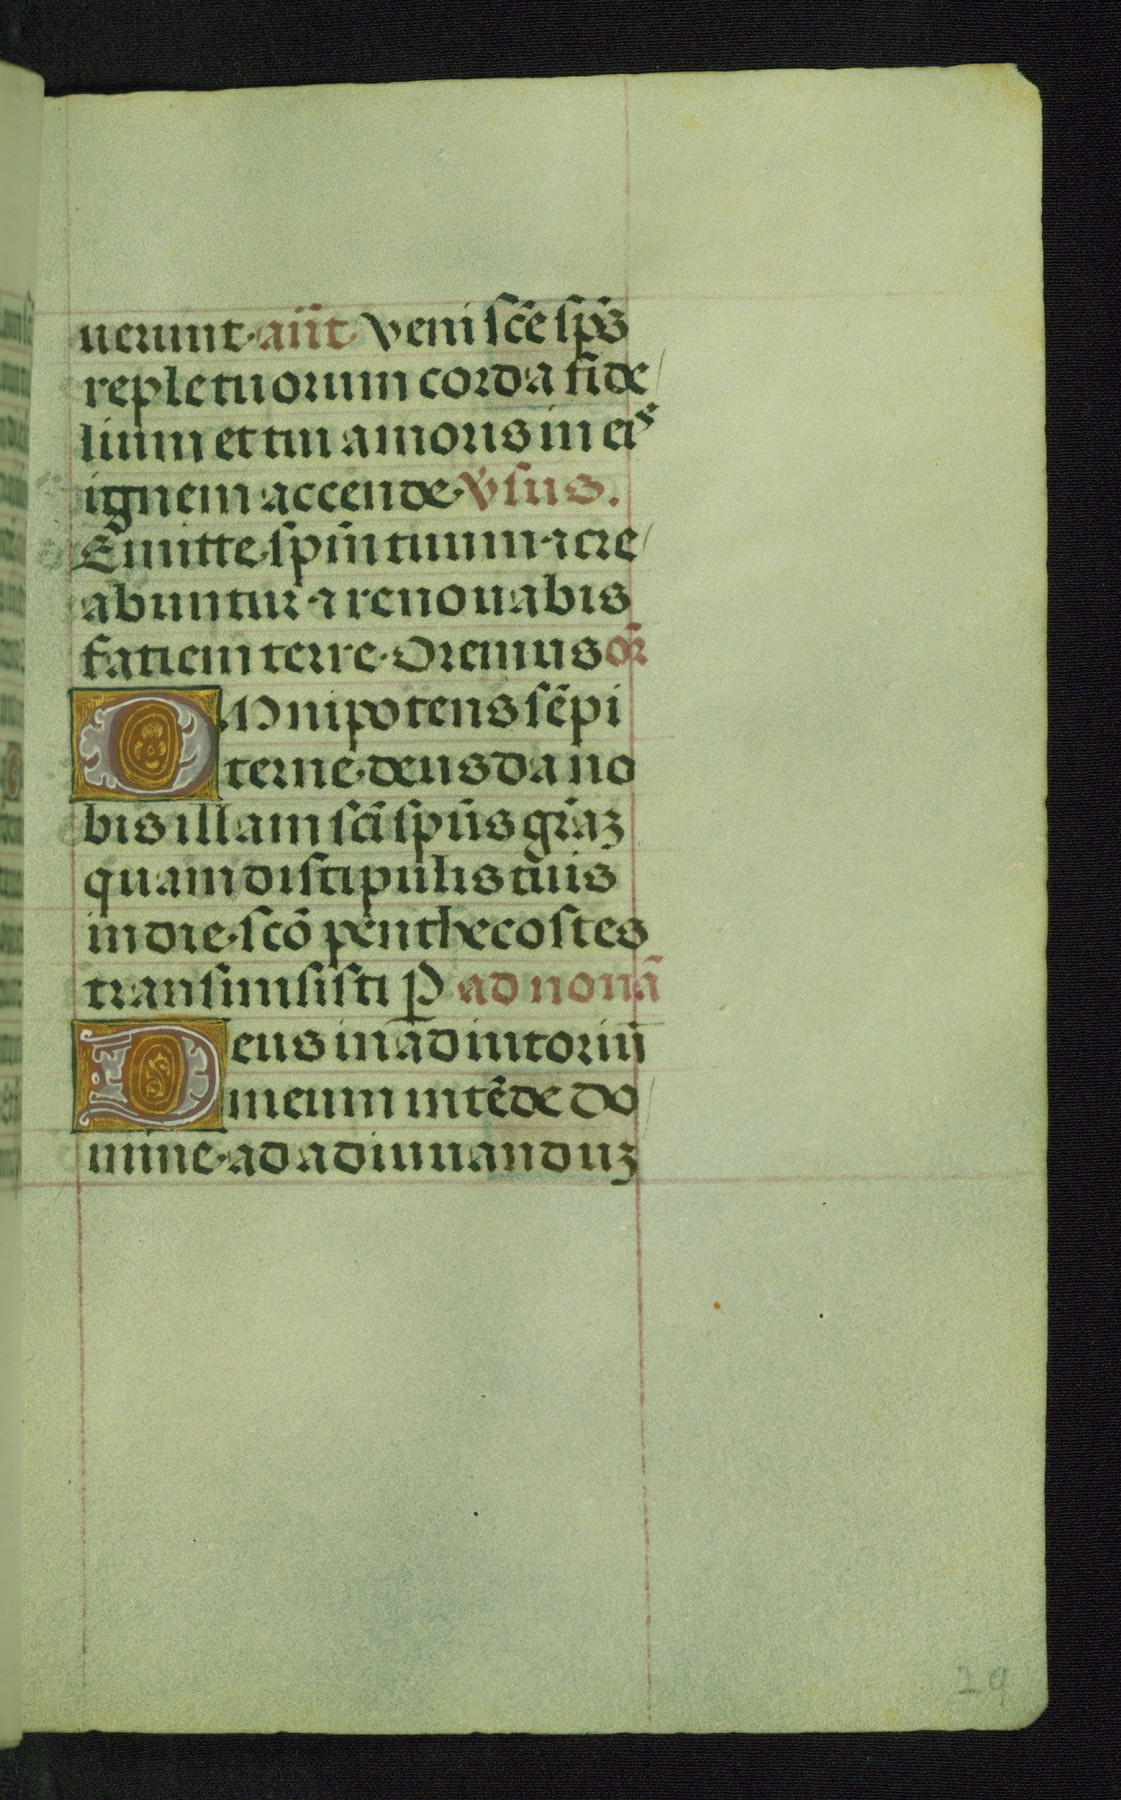 uerunt· añt· Veni sc̃e sp̃s
reple tuorum corda fide/
lium et tui amoris in eis
ignem accende· v̾sus.
Emitte· sp̃m tuum· ⁊ cre/
abuntur· ⁊ renouabis
fatiem terre· Oremus or̃
OMnipotens sẽpi
terne· deus da no
bis illam sc̃i sp̃us gr̃aꝫ
quam distipulis tuis
in die· sc̃o penthecostes
transmisisti P ad nonã
Deus in adiutoriũ
meum intẽde Do/
mine· ad adiuuanduꝫ
29